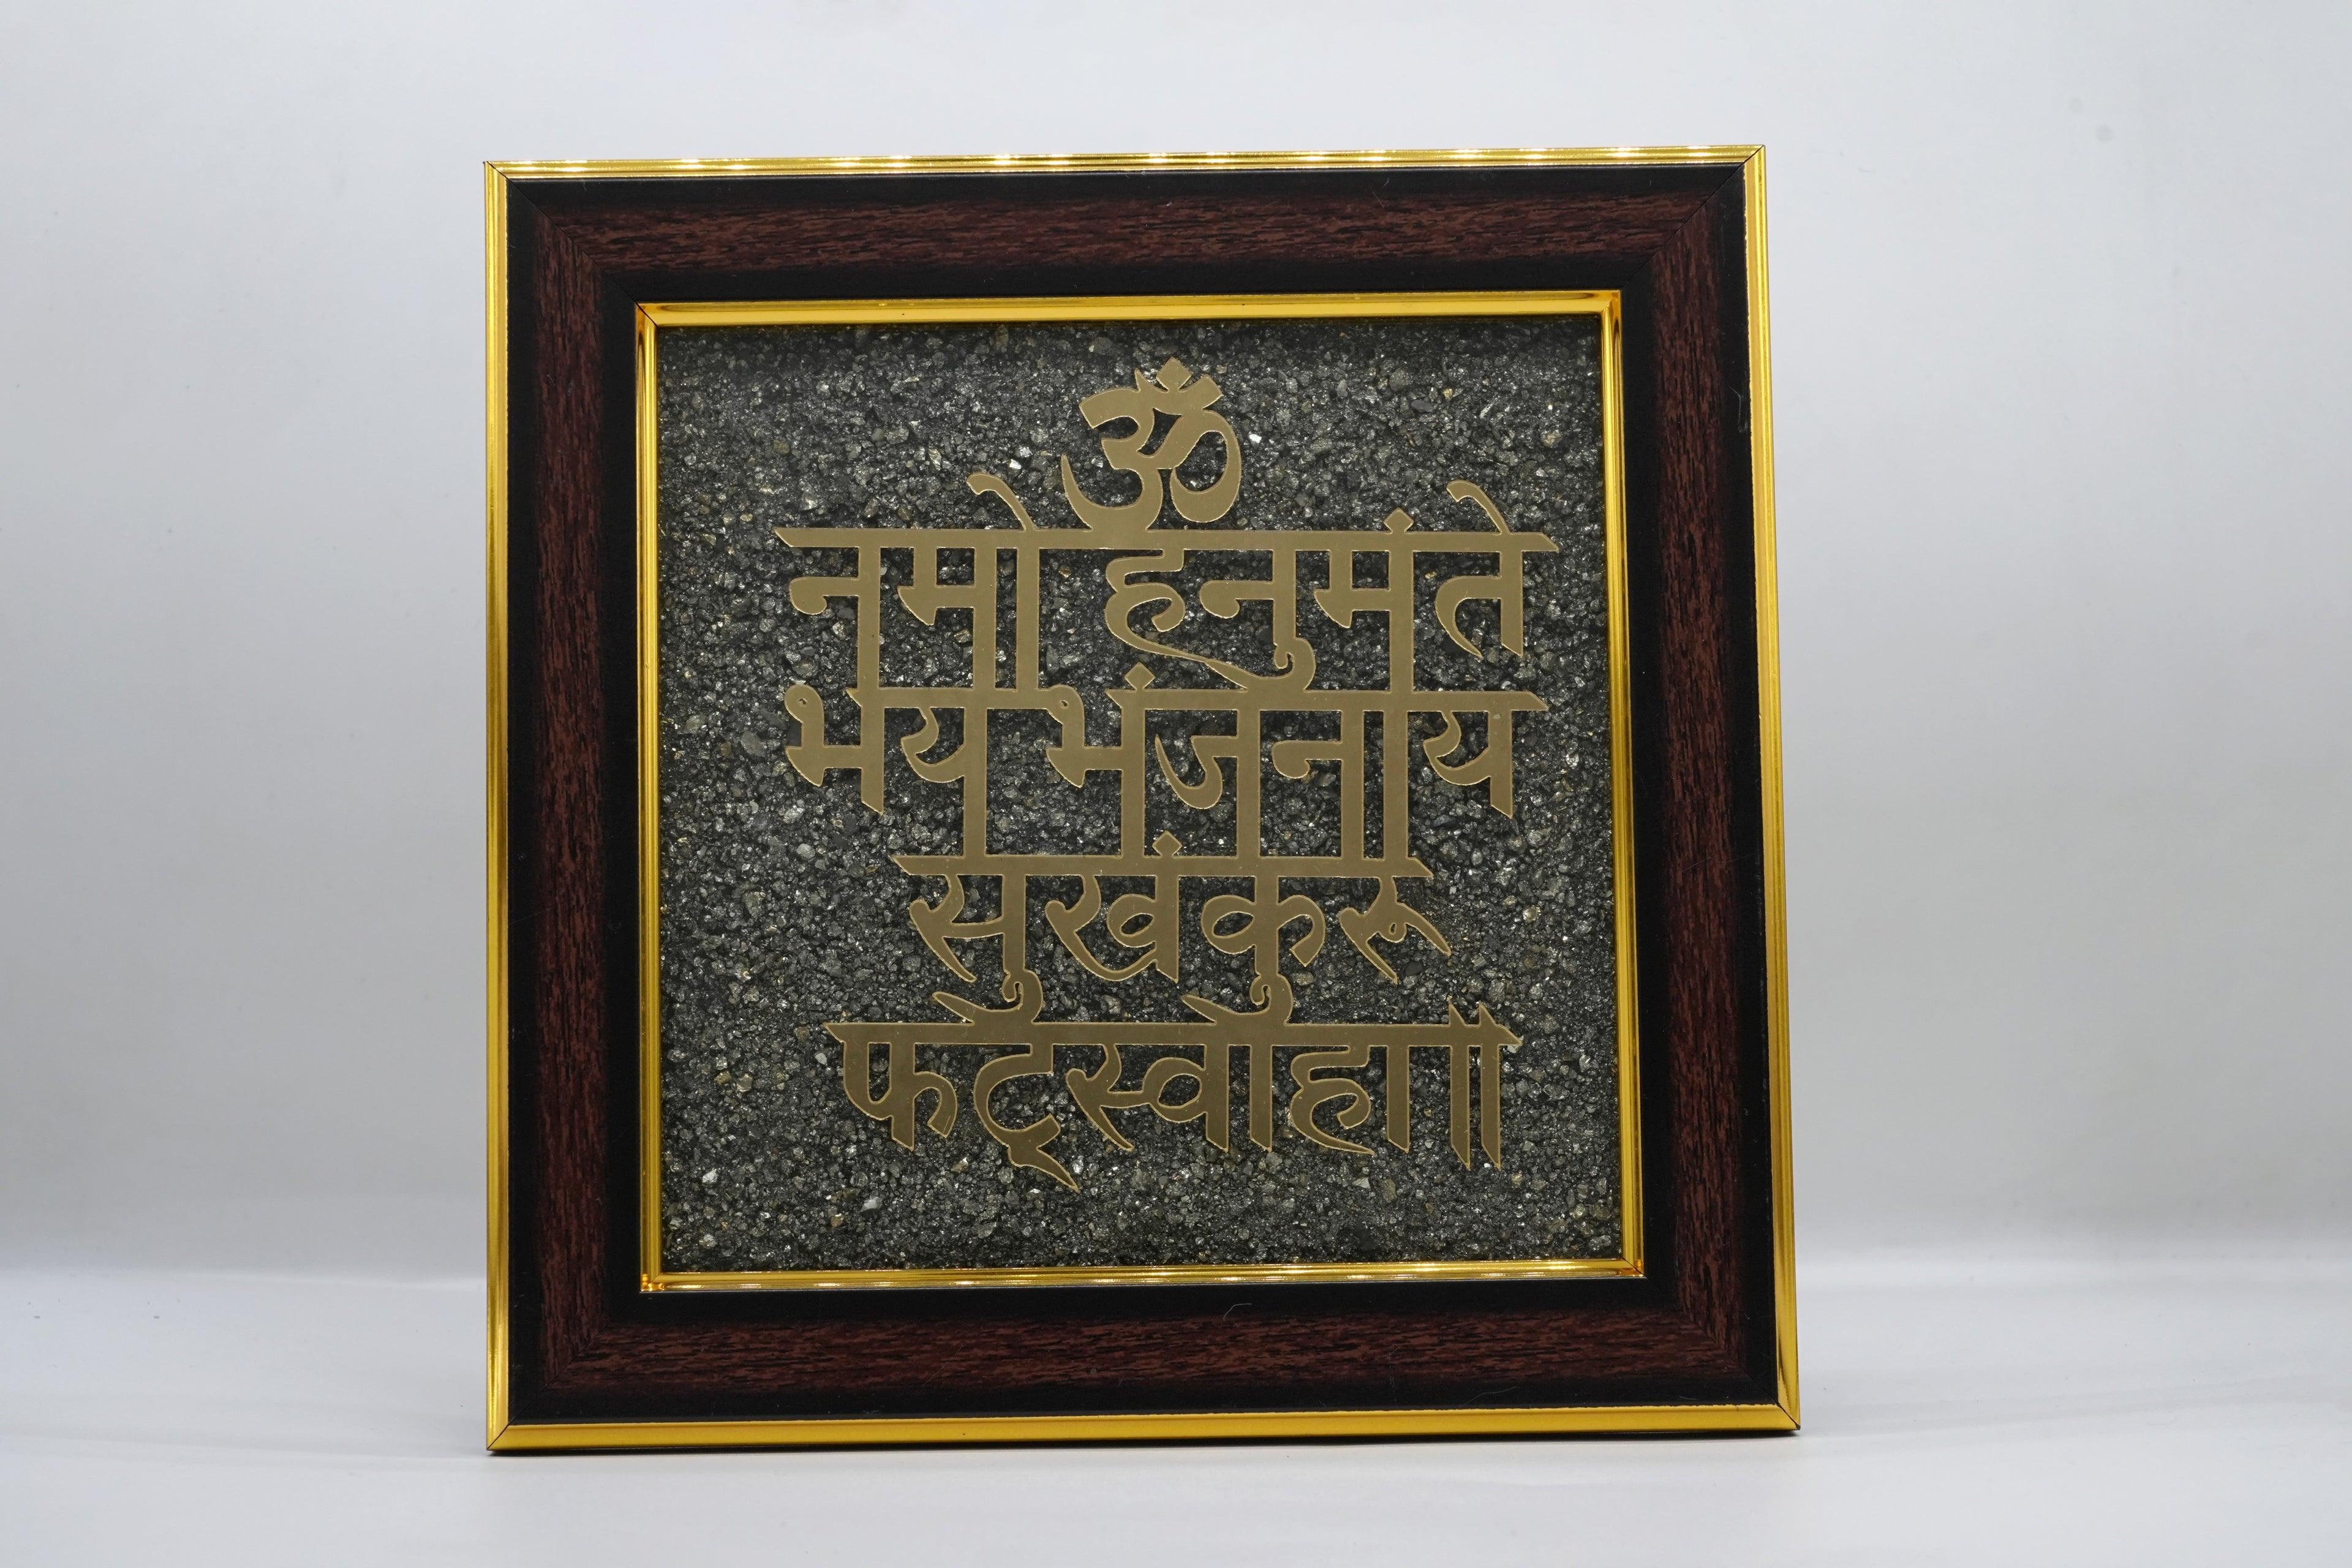 ॐ
नमो हनुमंते
भय भंजनाय
सुखंकुरू
फट्स्वाहा॥